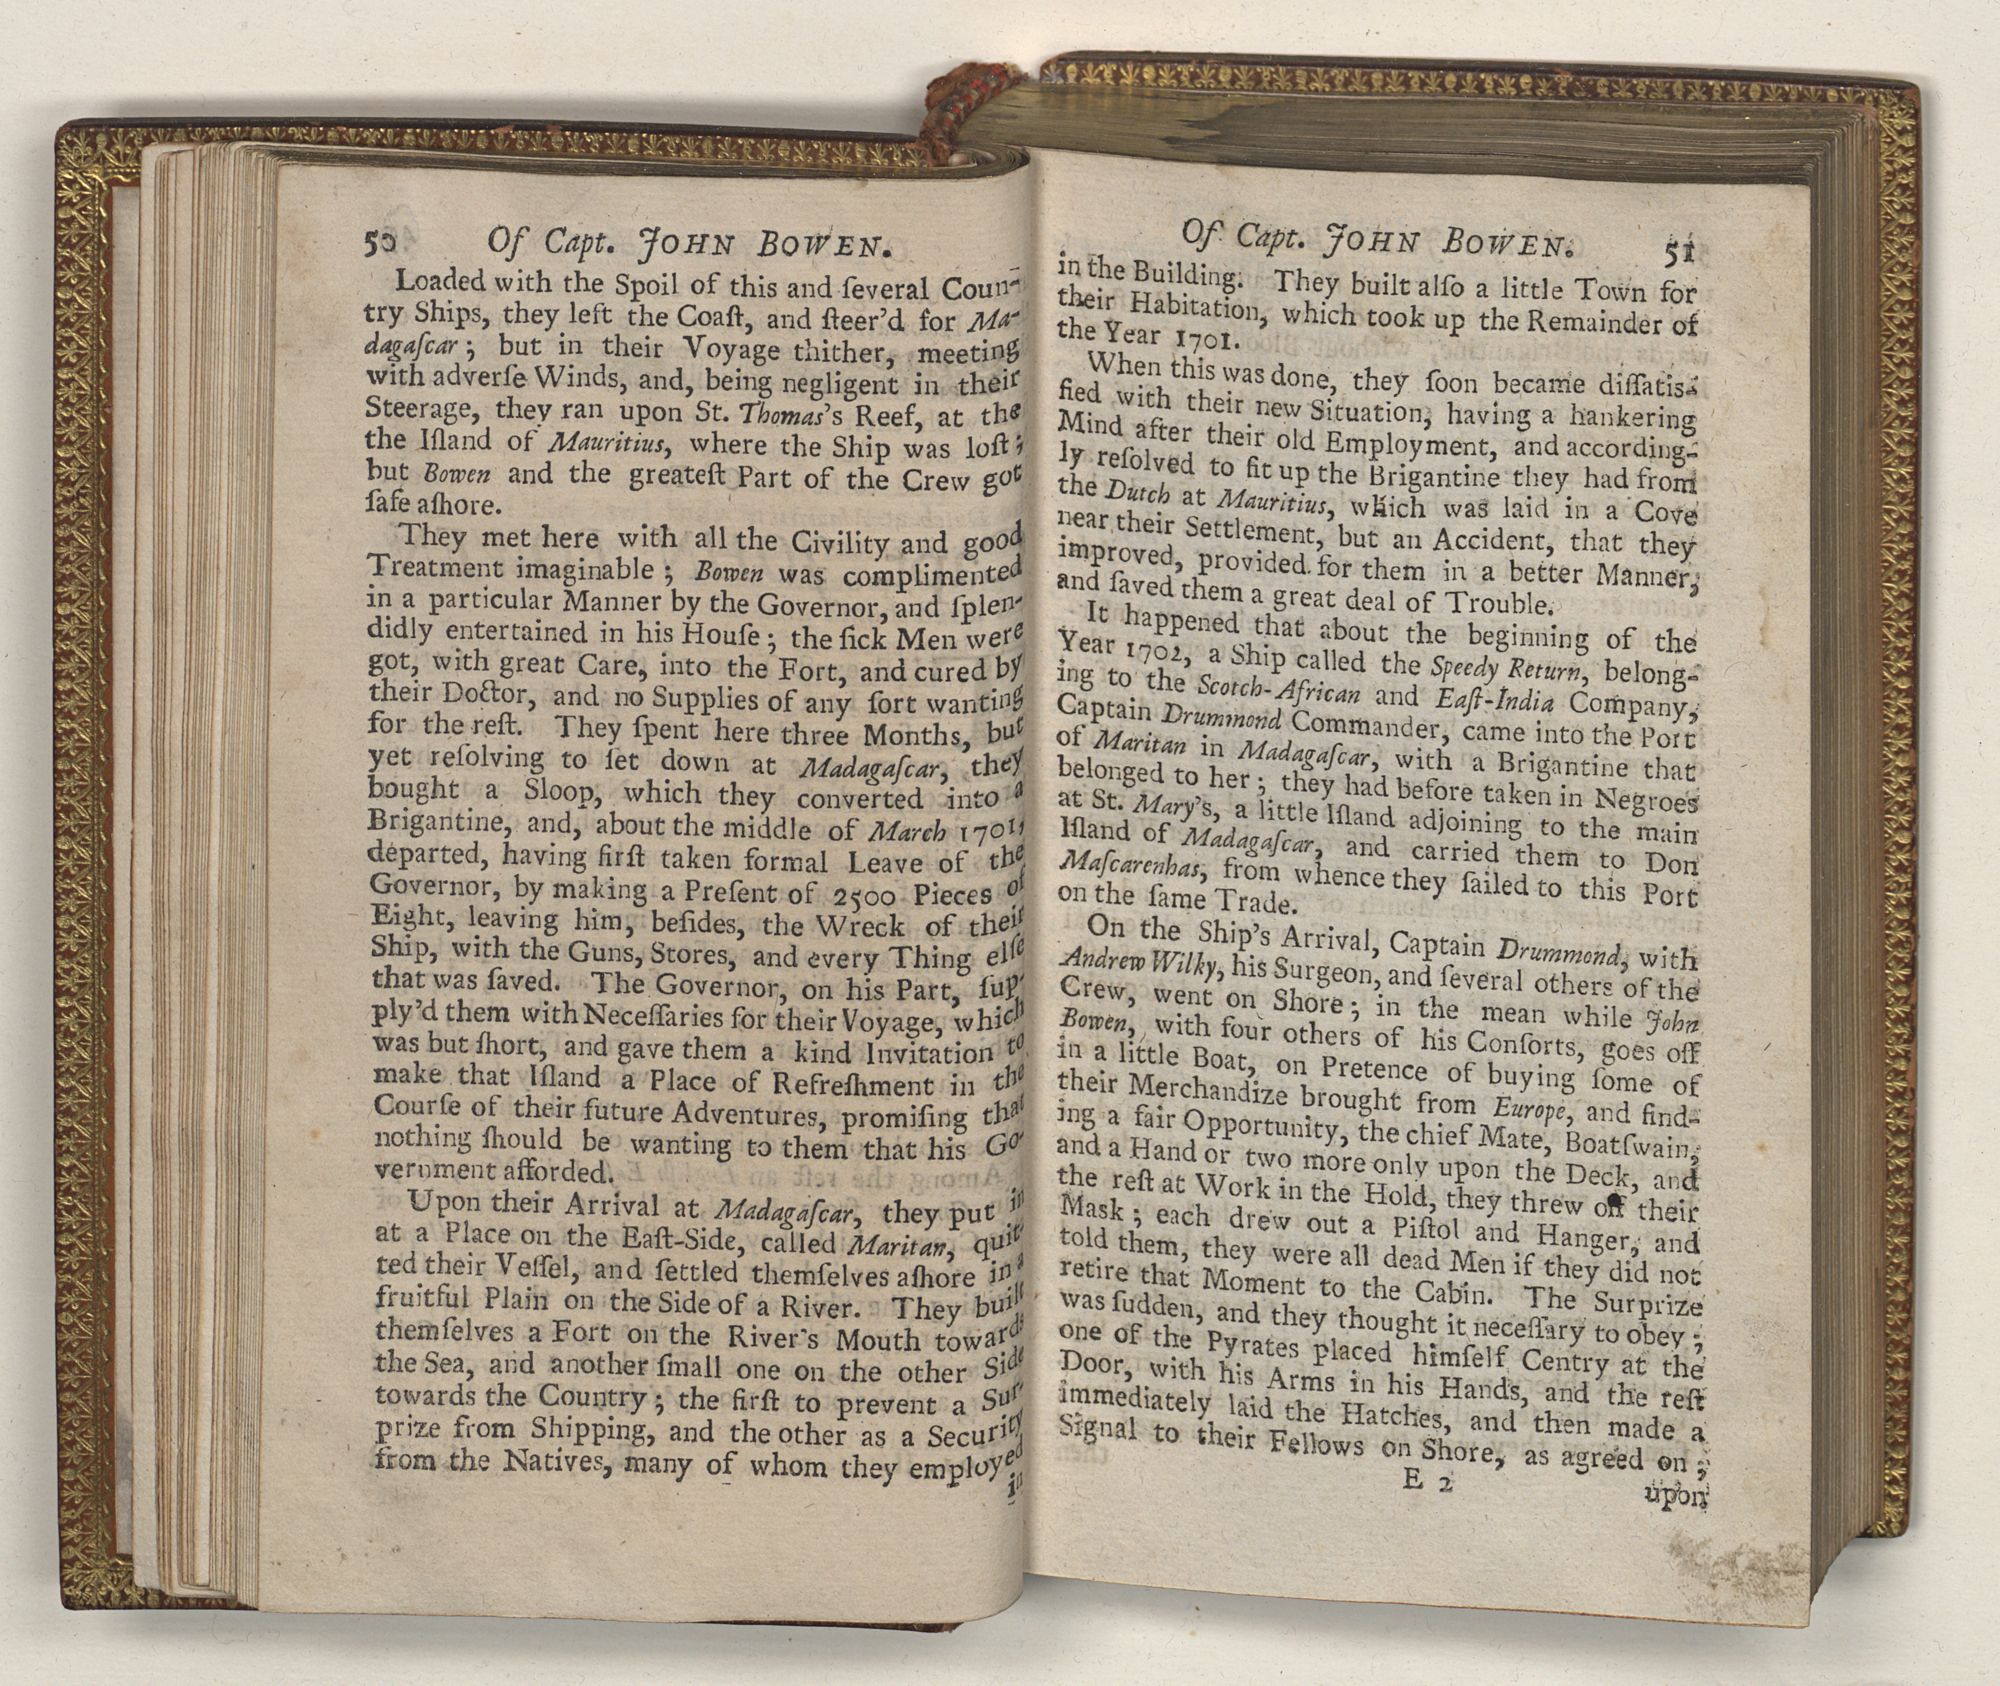 50 Of Capt. JOHN BOWEN.
Loaded with the Spoil of this and ſeveral Coun-
try Ships, they left the Coaſt, and ſteer'd for Ma-
dagaſcar; but in their Voyage thither, meeting
with adverſe Winds, and, being negligent in their
Steerage, they ran upon St. Thomas's Reef, at the
the Iſland of Mauritius, where the Ship was loſt;
but Bowen and the greateſt Part of the Crew got
ſafe aſhore.
They met here with all the Civility and good
Treatment imaginable; Bowen was complimented
in a particular Manner by the Governor, and ſplen-
didly entertained in his Houſe; the ſick Men were
got, with great Care, into the Fort, and cured by
their Doctor, and no Supplies of any ſort wanting
for the reſt. They ſpent here three Months, but
yet reſolving to ſet down at Madagaſcar, they
bought a Sloop, which they converted into a
Brigantine, and, about the middle of March 1701,
departed, having firſt taken formal Leave of the
Governor, by making a Preſent of 2500 Pieces of
Eight, leaving him, beſides, the Wreck of their
Ship, with the Guns, Stores, and every Thing elſe
that was ſaved. The Governor, on his Part, ſup-
ply'd them with Neceſſaries for their Voyage, which
was but ſhort, and gave them a kind Invitation to
make that Iſland a Place of Refreſhment in the
Courſe of their future Adventures, promiſing that
nothing ſhould be wanting to them that his Go-
vernment afforded.
Upon their Arrival at Madagaſcar, they put in
at a Place on the Eaſt-Side, called Maritan, quit-
ted their Veſſel, and ſettled themſelves aſhore in a
fruitful Plain on the Side of a River. They built
themſelves a Fort on the River's Mouth towards
the Sea, and another ſmall one on the other Side
towards the Country; the firſt to prevent a Sur-
prize from Shipping, and the other as a Security
from the Natives, many of whom they employed
in
Of Capt. JOHN BOWEN. 51
in the Building. They built alſo a little Town for
their Habitation, which took up the Remainder of
the Year 1701.
When this was done, they ſoon became diſſatis-
fied with their new Situation, having a hankering
Mind after their old Employment, and according-
ly reſolved to fit up the Brigantine they had from
the Dutch at Mauritius, which was laid in a Cove
near their Settlement, but an Accident, that they
improved, provided for them in a better Manner,
and ſaved them a great deal of Trouble.
It happened that about the beginning of the
Year 1702, a Ship called the Speedy Return, belong-
ing to the Scotch-African and Eaſt-India Company,
Captain Drummond Commander, came into the Port
of Maritan in Madagaſcar, with a Brigantine that
belonged to her; they had before taken in Negroes
at St. Mary's, a little Iſland adjoining to the main
Iſland of Madagaſcar, and carried them to Don
Maſcarenhas, from whence they ſailed to this Port
on the ſame Trade.
On the Ship's Arrival, Captain Drummond, with
Andrew Wilky, his Surgeon, and ſeveral others of the
Crew, went on Shore; in the mean while John
Bowen, with four others of his Conſorts, goes off
in a little Boat, on Pretence of buying ſome of
their Merchandize brought from Europe, and find-
ing a fair Opportunity, the chief Mate, Boatſwain,
and a Hand or two more only upon the Deck, and
the reſt at Work in the Hold, they threw off their
Mask; each drew out a Piſtol and Hanger, and
told them, they were all dead Men if they did not
retire that Moment to the Cabin. The Surprize
was ſudden, and they thought it neceſſary to obey;
one of the Pyrates placed himſelf Centry at the
Door, with his Arms in his Hands, and the reſt
immediately laid the Hatches, and then made a
Signal to their Fellows on Shore, as agreed on;
E 2 upon